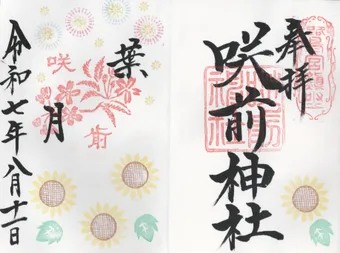 奉拝
咲前神社
葉月
咲前
令和七年八月十一日